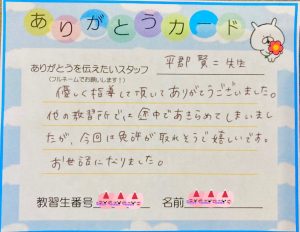 ありがとうカード
ありがとうを伝えたいスタッフ
(フルネームでお願いします!)
平郡 賢二 先生
優しく指導して頂いてありがとうございました。
他の教習所では途中であきらめてしまいまし
たが、今回は免許が取れそうで嬉しいです。
お世話になりました。
教習生番号 名前